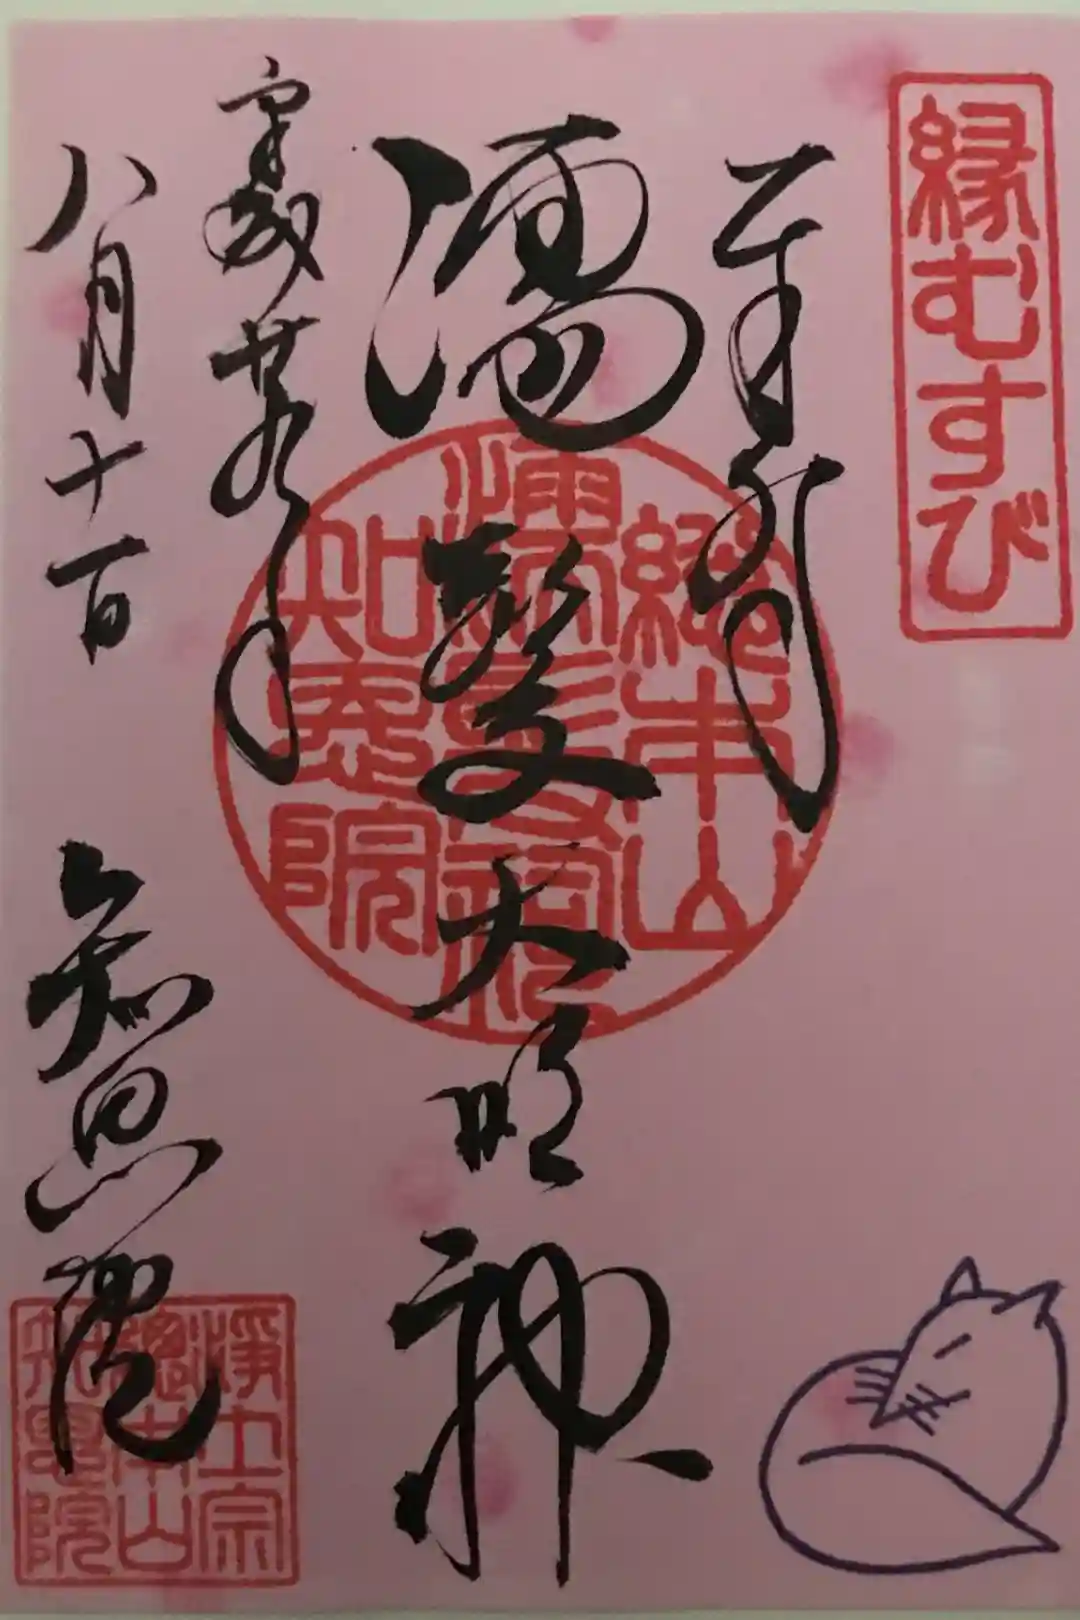 縁むすび
奉拝
濡髪大明神
平成廿九年
八月十一日
知恩院
総本山
濡髪祠
知恩院
浄土宗
總本山
知恩院